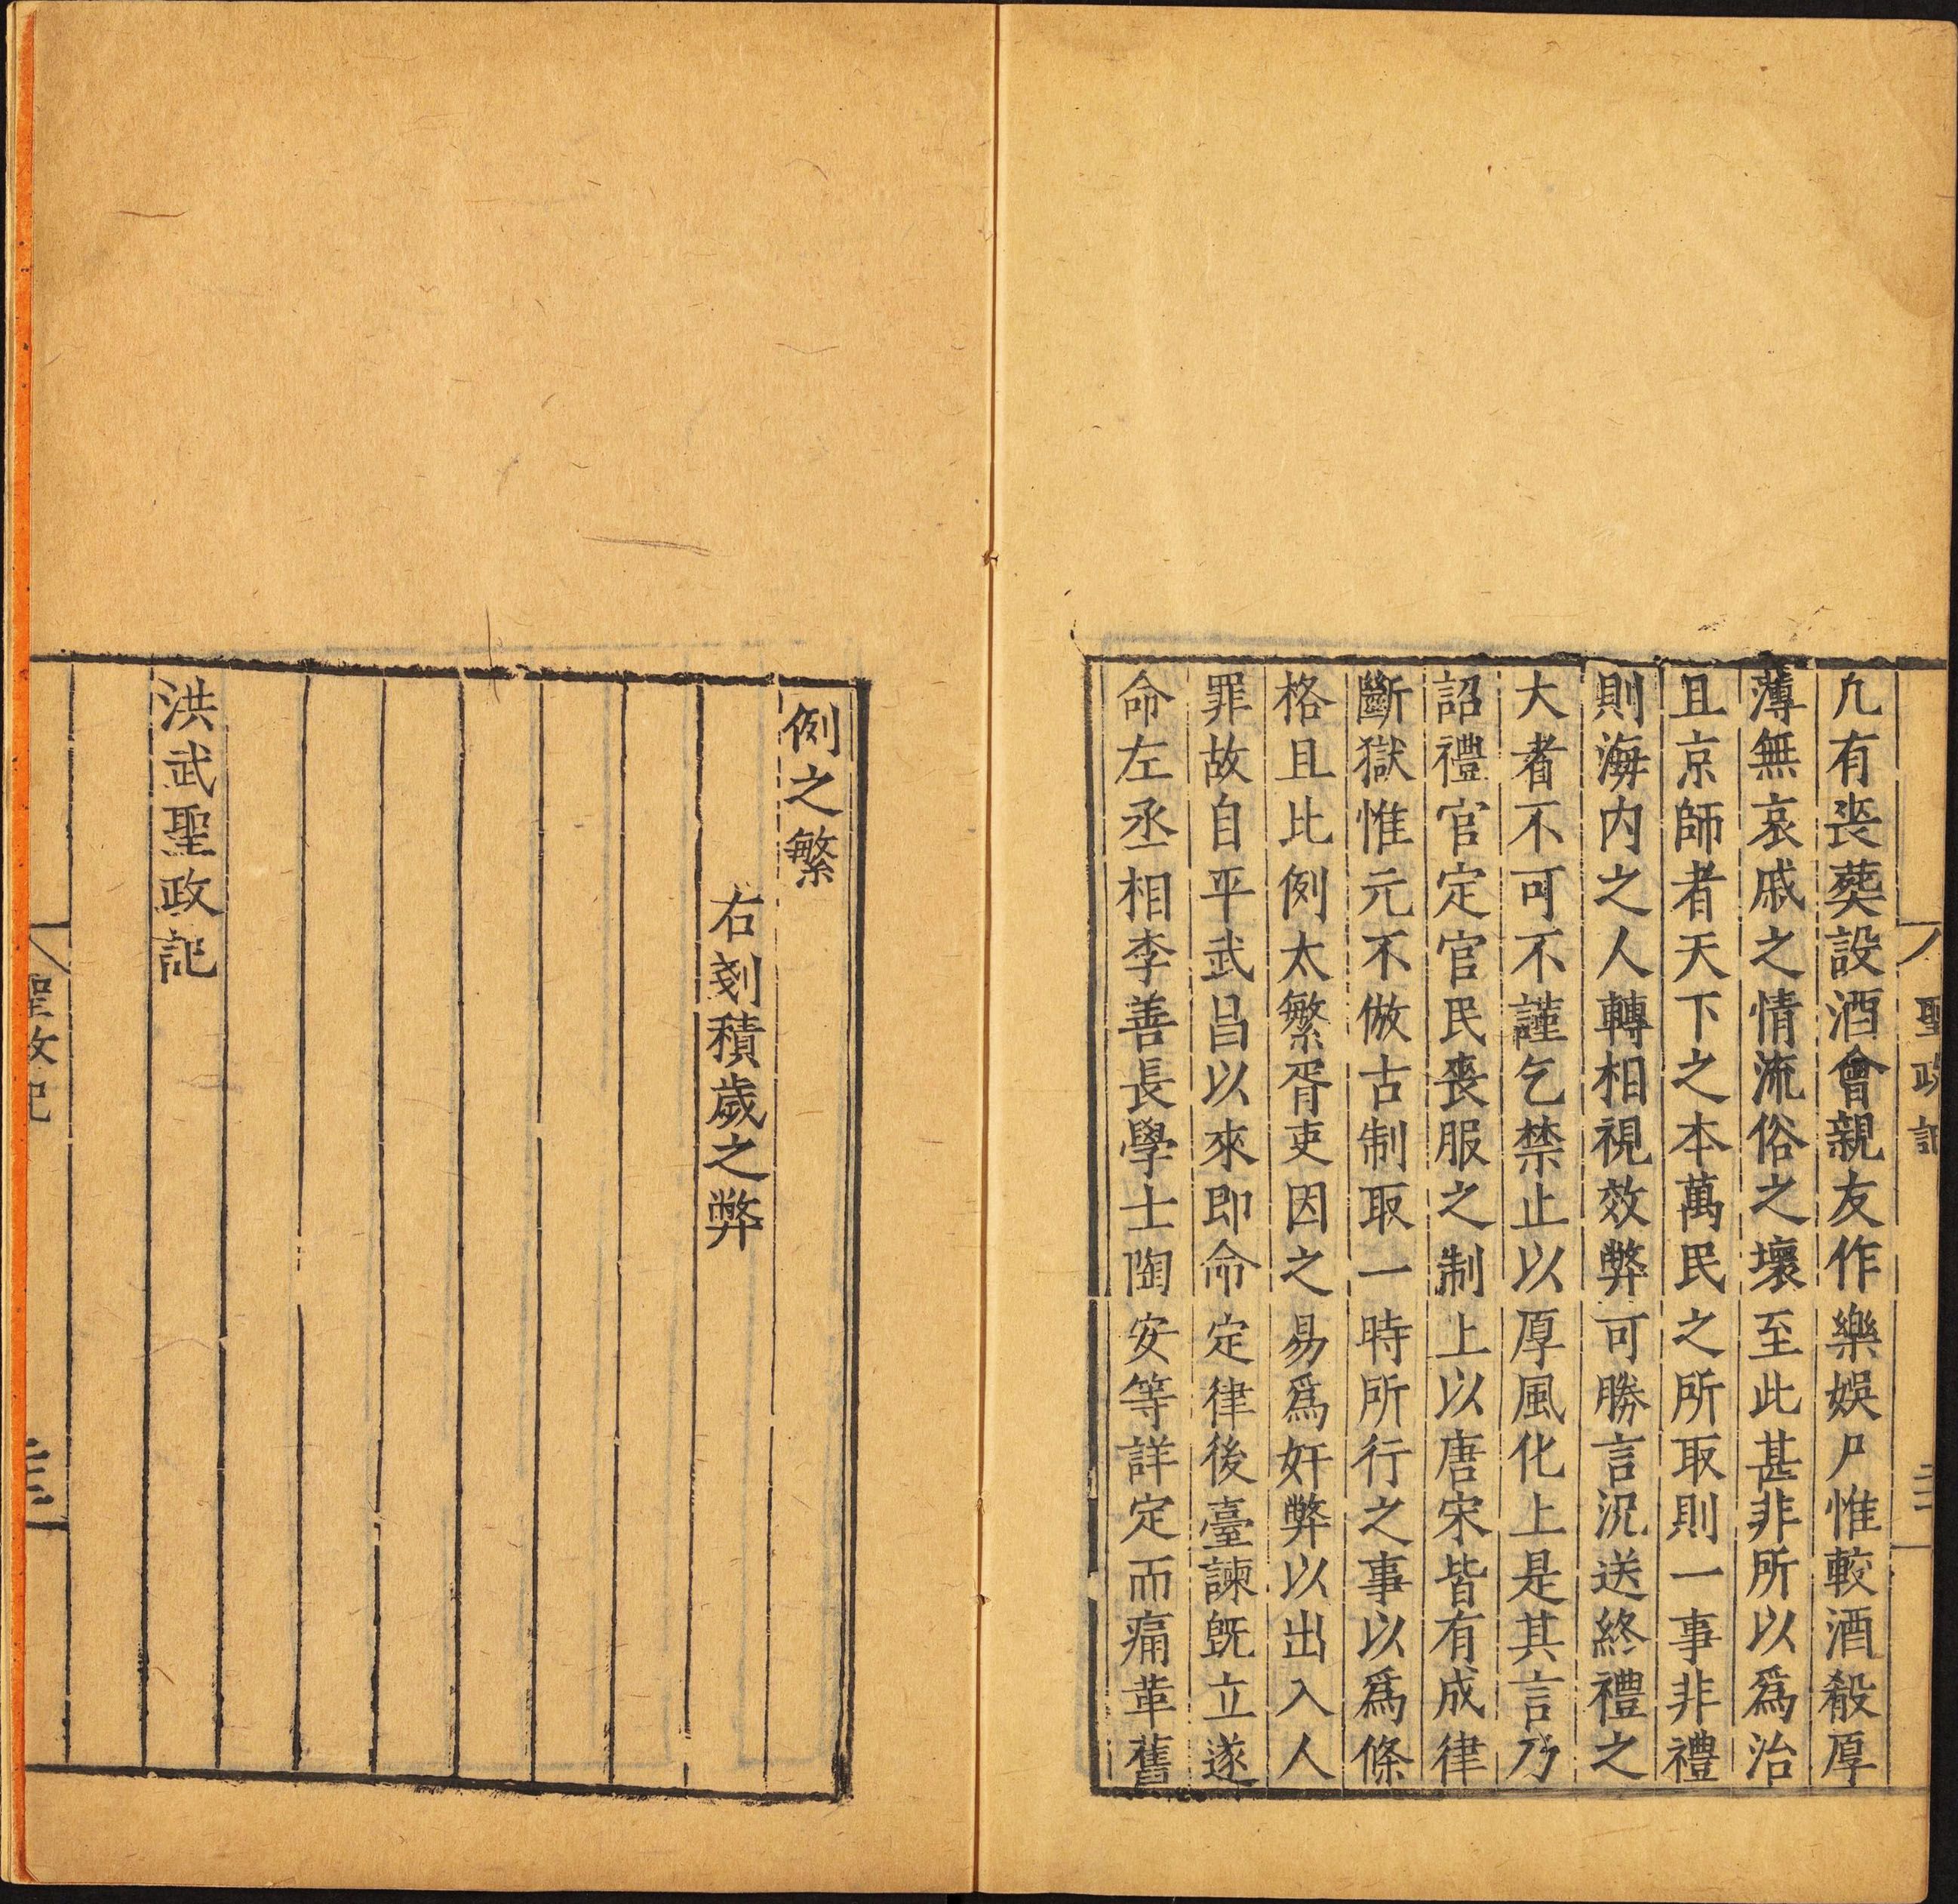 聖政記
凢有喪葬設酒會親友作樂娛尸惟較酒殽厚
薄無哀戚之情流俗之壞至此甚非所以爲治
且京師者天下之本萬民之所取則一事非禮
則海内之人轉相視效弊可勝言況送終禮之
大者不可不謹乞禁止以厚風化上是其言乃
詔禮官定官民喪服之制上以唐宋皆有成律
斷獄惟元不倣古制取一時所行之事以爲條
格且比例太繁胥吏因之易爲奸弊以出入人
罪故自平武昌以來即命定律後臺諫旣立遂
命左丞相李善長學士陶安等詳定而痛革舊
例之繁
右剗積歲之弊
洪武聖政記
聖政記